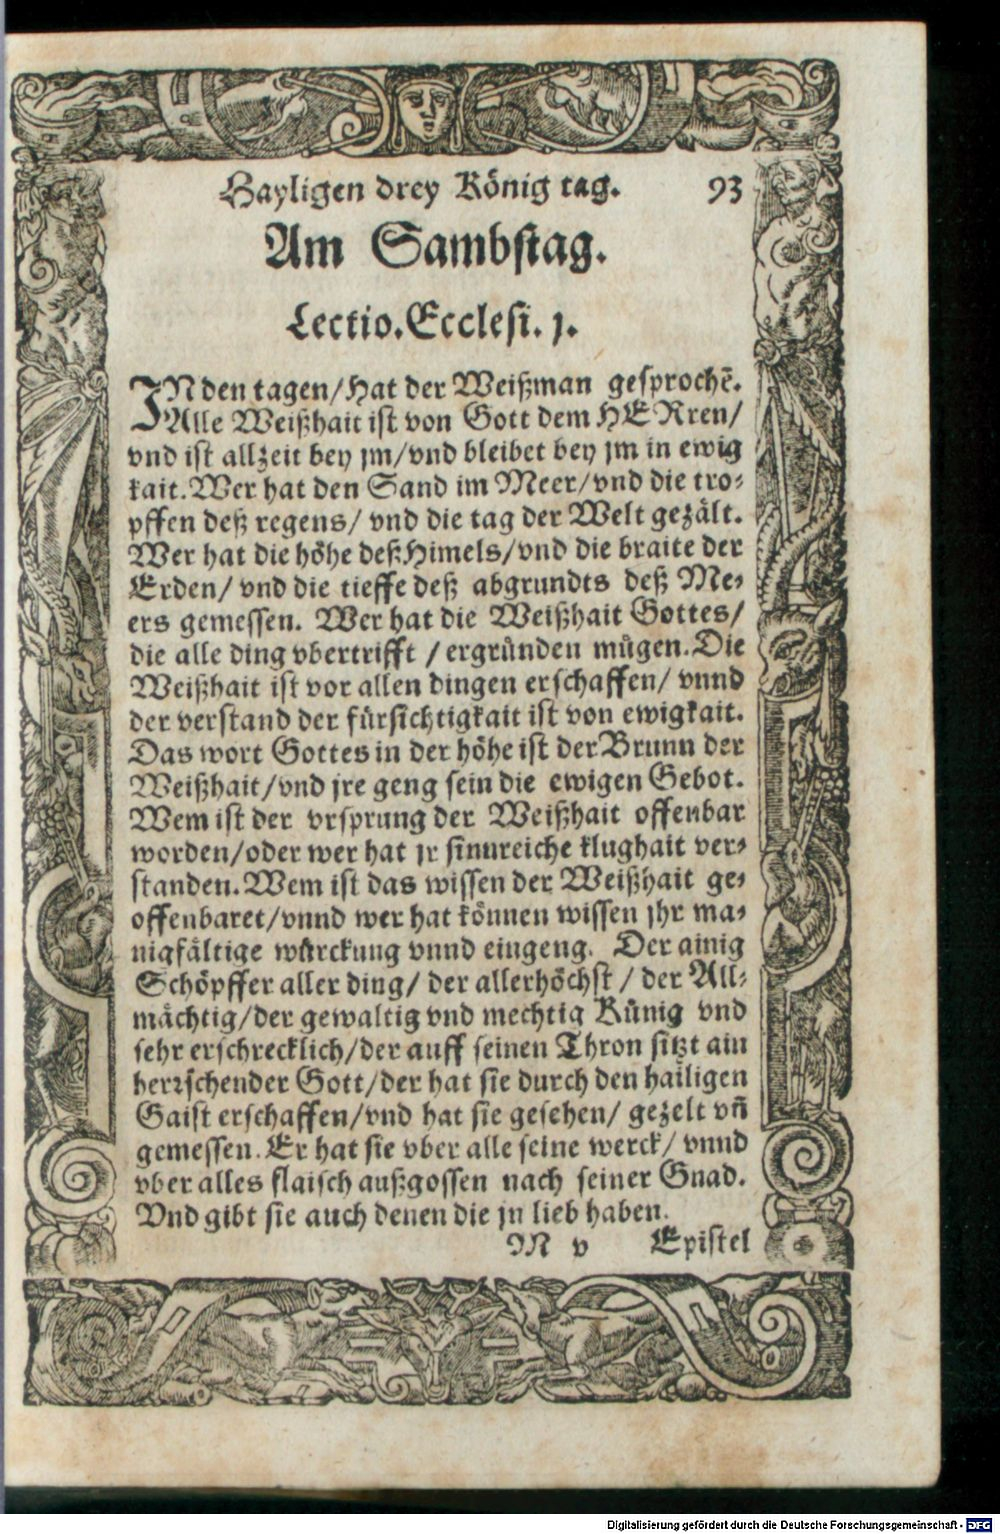 Hayligen drey König tag. 93
Am Sambstag.
Lectio. Ecclesi. j.
IN den tagen/Hat der Weißman gesprochē.
Alle Weißhait ist von Gott dem HERren/
vnd ist allzeit bey jm/vnd bleibet bey jm in ewig
kait. Wer hat den Sand im Meer/vnd die tro-
pffen deß regens/ vnd die tag der Welt gezält.
Wer hat die höhe deß Himels/vnd die braite der
Erden/ vnd die tieffe deß abgrundts deß Me-
ers gemessen. Wer hat die Weißhait Gottes/
die alle ding vbertrifft / ergründen mügen. Die
Weißhait ist vor allen dingen erschaffen/ vnnd
der verstand der fürsichtigkait ist von ewigkait.
Das wort Gottes in der höhe ist der Brunn der
Weißhait/vnd jre geng sein die ewigen Gebot.
Wem ist der vrsprung der Weißhait offenbar
worden/oder wer hat jr sinnreiche klughait ver-
standen. Wem ist das wissen der Weißhait ge-
offenbaret/vnnd wer hat können wissen jhr ma-
nigfältige würckung vnnd eingeng. Der ainig
Schöpffer aller ding/ der allerhöchst / der All-
mächtig/der gewaltig vnd mechtig Künig vnd
sehr erschrecklich/der auff seinen Thron sitzt ain
herrschender Gott/der hat sie durch den hailigen
Gaist erschaffen/vnd hat sie gesehen/ gezelt vñ
gemessen. Er hat sie vber alle seine werck/ vnnd
vber alles flaisch außgossen nach seiner Gnad.
Vnd gibt sie auch denen die jn lieb haben.
M v Epistel
Digitalisierung gefördert durch die Deutsche Forschungsgemeinschaft - DFG